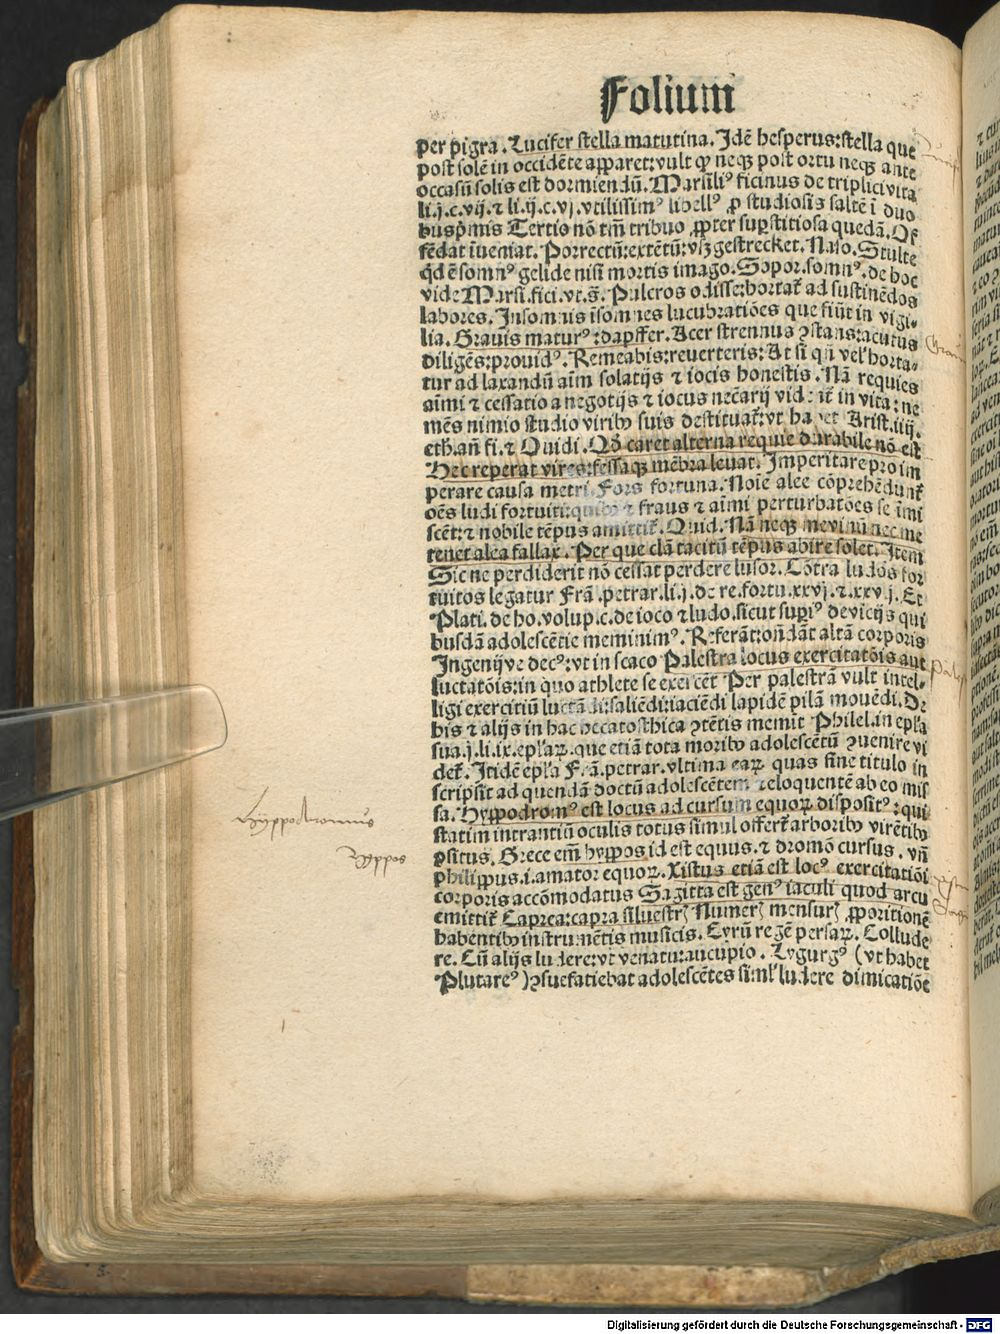 Folium
per pigra. Lucifer stella matutina. Idẽ hesperus:stella que
post solẽ in occidẽte apparet:vult qꝫ neqꝫ post ortu neqꝫ ante
occasũ solis est dormiendũ. Marsiliꝰ ficinus de triplici vita
li.j.c.vij.⁊ li.ij.c.vj.vtilissimꝰ libellꝰ ꝓ studiosis saltẽ ĩ duo
busp̃mis Tertio nõ tm̃ tribuo ꝓpter sup̃stitiosa quedã. Of
fẽdat ĩueniat. Porrectũ:extẽtũ:vsz gestrecket. Naso. Stulte
qd ẽ somnꝰ gelide nisi mortis imago. Sopor.somnꝰ.de hoc
vide Marsi.fici.vt.s̃. Pulcros odisse:hortat̃ ad sustinẽdos
labores. Insomnis ĩsomnes lucubratiões que fiũt in vigi-
lia. Gravis maturꝰ:dapffer. Acer strennus ꝯstans:acutus
diligẽs:prouidꝰ. Remeabis:reuerteris: At si qñ vel horta-
tur ad laxandũ aĩm solatijs ⁊ iocis honestis. Nã requies
aĩmi ⁊ cessatio a negotijs ⁊ iocus necc̃arij videt̃ in vita: ne
mẽs nimio studio viribꝰ suis destituat̃:vt habet Arist.iiij.
eth.añ fi.⁊ Ouidi. Qõ caret alterna requie durabile nõ est
Hec reperat vires:fessaqꝫ mẽbra leuat. Imperitare pro im
perare causa metri Fors fortuna. Noĩe alee cõprehẽdunt̃
oẽs ludi fortuiti:quibꝰ ⁊ fraus ⁊ aĩmi perturbatões se ĩmi
scẽt:⁊ nobile tẽpus amittit̃. Ouid. Nã neqꝫ me vinũ nec me
tenet alea fallax. Per que clã tacitũ tẽpus abire solet. Item
Sic ne perdiderit nõ cessat perdere lusor. Cõtra ludos for
tuitos legatur Frã.petrar.li.j.de re.fortu.xxvj.⁊.xxvij. Et
Plati.de ho.volup.c.de ioco ⁊ ludo.sicut sup̃iꝰ de vicijs qui
busdã adolescẽtie meminimꝰ. Referãt:oñdãt altã corporis
Ingenijve decꝰ:vt in scaco Palestra locus exercitatõis aut
luctatõis:in quo athlete se exercẽt Per palestrã vult intel-
ligi exercitiũ luctãdi:saliẽdi:iaciẽdi lapidẽ pilã mouẽdi. De
his ⁊ alijs in hac hecatosthica ꝯtẽtis memit̃ Philel.in ep̃la
sua.j.li.ix.ep̃laꝝ.que etiã tota moribꝰ adolescẽtũ ꝯuenire vi
det̃. Itidẽ ep̃la Frã.petrar.vltima eaꝝ quas sine titulo in
scripsit ad quendã doctũ adolescẽtem ⁊ eloquentẽ ab eo mis
sa. Hyppodromꝰ est locus ad cursum equoꝝ dispositꝰ:qui
statim intrantiũ oculis totus simul offert̃ arboribꝰ virẽtibꝰ
ꝯsitus. Grece em̃ hyppos id est equus.⁊ dromõ cursus. vñ
philippus.i.amator equoꝝ. Xistus etiã est locꝰ exercitatiõi
corporis accõmodatus Sagitta est genꝰ iaculi quod arcu
emittit̃ Caprea:capra siluestrꝫ Numerꝫ mensurꝫ ꝓporitionẽ
habentibꝰ instrumẽtis musicis. Cyrũ regẽ persaꝝ. Collude
re. Cũ alijs ludere:vt venatu:aucupio. Lygurgꝰ (vt habet
Plutarcꝰ) ꝯsuefatiebat adolescẽtes siml' ludere dimicatiõe
Hyppodromus
Hyppos
Digitalisierung gefördert durch die Deutsche Forschungsgemeinschaft - DFG